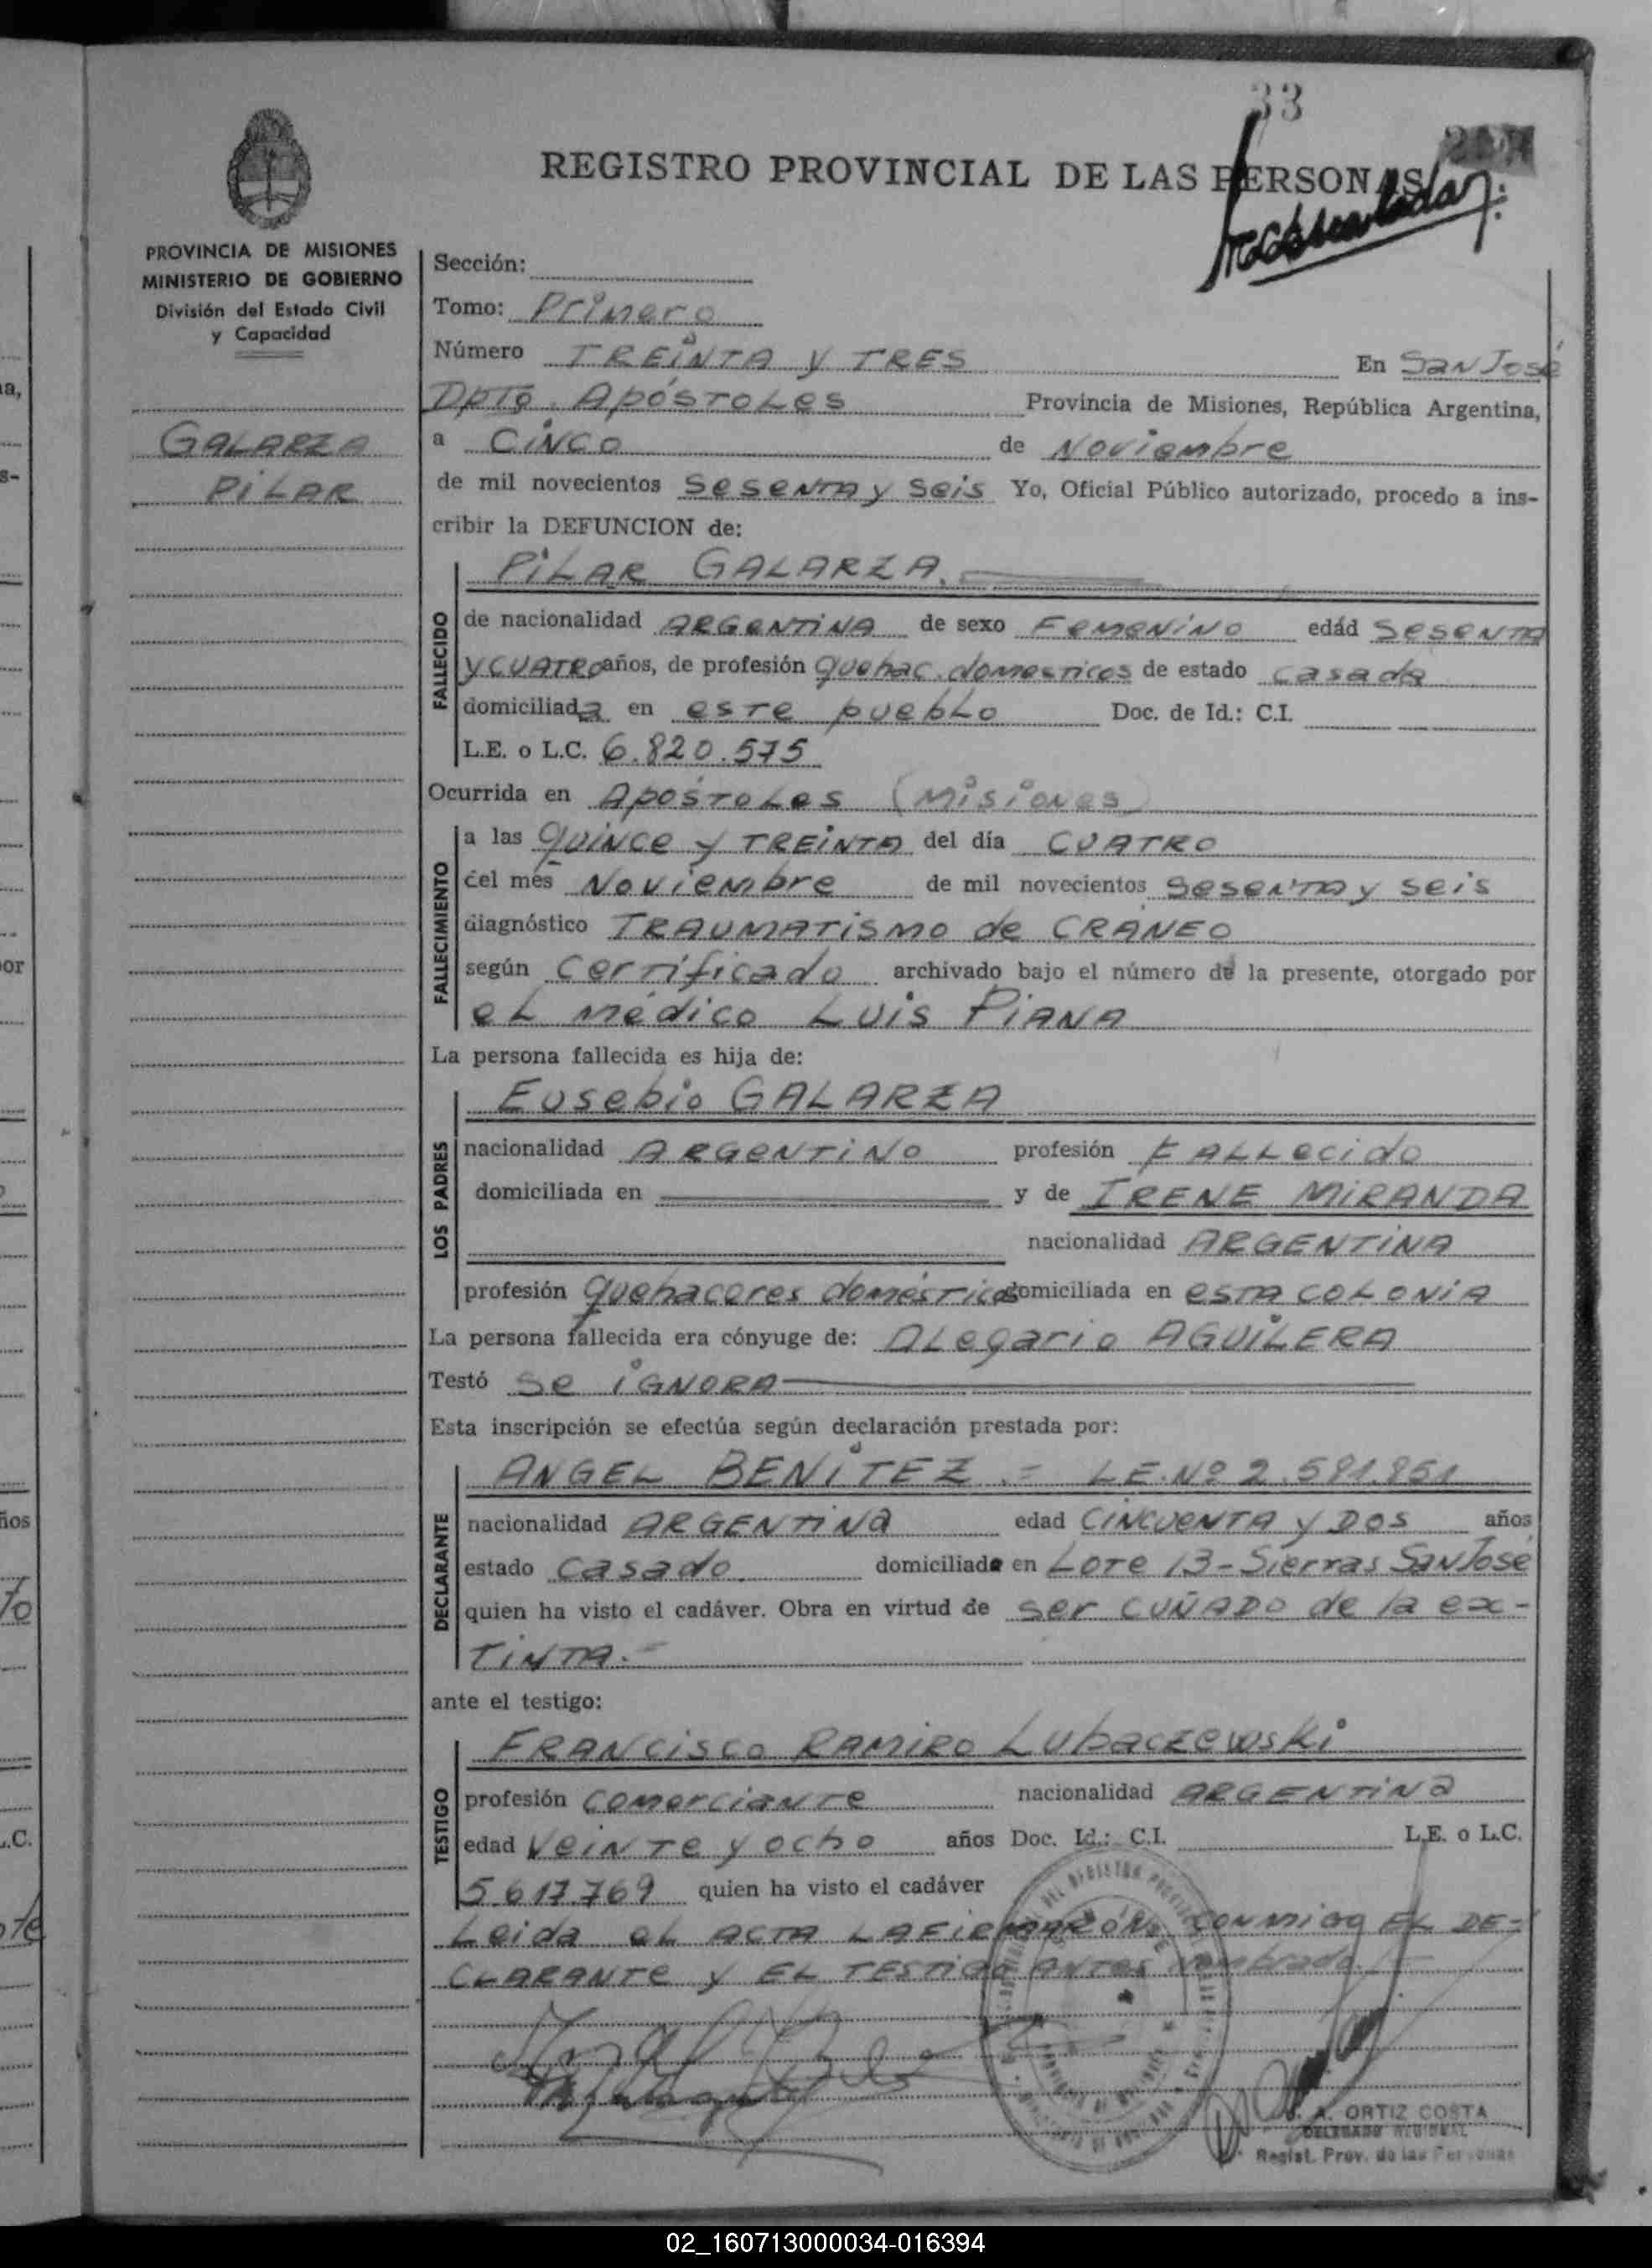 33
REGISTRO PROVINCIAL DE LAS PERSONAS
PROVINCIA DE MISIONES
MINISTERIO DE GOBIERNO
División del Estado Civil
y Capacidad
GALARZA
PILAR
Sección:
Tomo: Primero
Número TREINTA y TRES En San José
Dpto. Apóstoles Provincia de Misiones, República Argentina,
a CINCO de Noviembre
de mil novecientos Sesenta y Seis Yo, Oficial Público autorizado, procedo a ins-
cribir la DEFUNCION de:
PILAR GALARZA.
FALLECIDO
de nacionalidad ARGENTINA de sexo Femenino edád Sesenta
y CUATRO años, de profesión quehac. domesticos de estado casada
domiciliada en este pueblo Doc. de Id.: C.I.
L.E. o L.C. 6.820.575
Ocurrida en Apóstoles (Misiones)
FALLECIMIENTO
a las quince y TREINTA del día CUATRO
del més Noviembre de mil novecientos Sesenta y seis
diagnóstico TRAUMATISMO de CRÁNEO
según Certificado archivado bajo el número de la presente, otorgado por
el médico Luis PIANA
La persona fallecida es hija de:
LOS PADRES
Eusebio GALARZA
nacionalidad ARGENTINO profesión FALLecido
domiciliada en y de IRENE MIRANDA
nacionalidad ARGENTINA
profesión quehaceres domésticos domiciliada en esta COLONIA
La persona fallecida era cónyuge de: OLegario AGUILERA
Testó Se IGNORA
Esta inscripción se efectúa según declaración prestada por:
DECLARANTE
ANGEL BENITEZ.= L.E.Nº 2.581.851
nacionalidad ARGENTINA edad CINCUENTA y DOS años
estado Casado. domiciliado en Lote 13-Sierras San José
quien ha visto el cadáver. Obra en virtud de ser CUÑADO de la ex-
TINTA.=
ante el testigo:
TESTIGO
FRANCISCO RAMIRO Lubaczewski
profesión comerciante nacionalidad ARGENTINA
edad veinte y ocho años Doc. Id.: C.I. L.E. o L.C.
5.617.769 quien ha visto el cadáver
Leida el ACTA LA FIRMARÓN conmigo EL DE-
CLARANTE y EL TESTIGO ANTES nombrado.
A. ORTIZ COSTA
DELEGADO REGIONAL
Regist. Prov. de las Personas
02_160713000034-016394